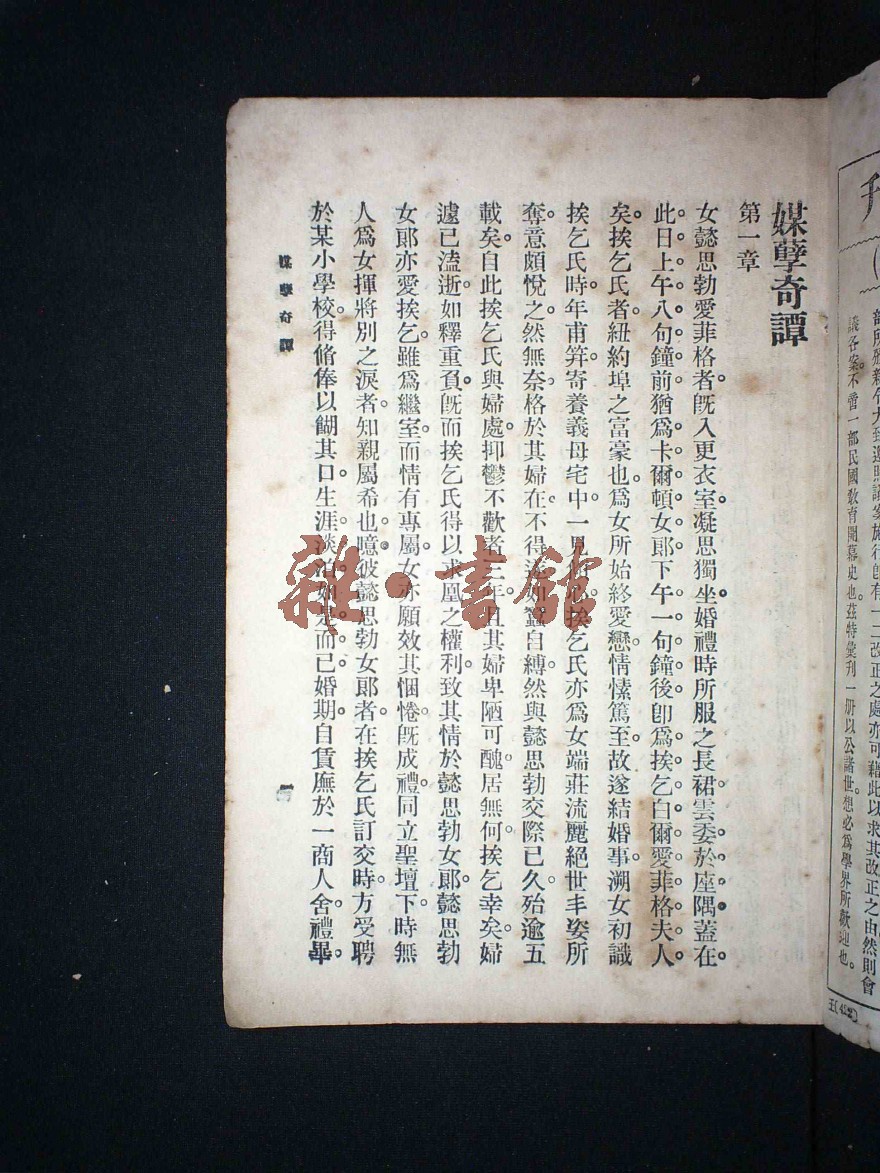 媒孽奇譚
第一章
女懿思勃愛菲格者。旣入更衣室。凝思獨坐。婚禮時所服之長裙。雲委於座隅。蓋在
此日上午八句鐘前。猶爲卡爾頓女郞。下午一句鐘後。卽爲挨乞白爾愛菲格夫人
矣。挨乞氏者。紐約埠之富豪也。爲女所始終愛戀。情愫篤至。故遂結婚事。溯女初識
挨乞氏時。年甫笄。寄養義母宅中。一見。挨乞氏亦爲女端莊流麗絕世丰姿所
奪。意頗悅之。然無奈格於其婦在。不得。如蠶自縛。然與懿思勃交際已久。殆逾五
載矣。自此挨乞氏與婦處。抑鬱不歡者三年。且其婦卑陋可醜。居無何。挨乞幸矣。婦
遽已溘逝。如釋重負。旣而挨乞氏得以求凰之權利。致其情於懿思勃女郞。懿思勃
女郞亦愛挨乞。雖爲繼室。而情有專屬。女亦願效其悃惓。旣成禮。同立聖壇下。時無
人爲女揮將別之淚者。知親屬希也。噫。彼懿思勃女郞者。在挨乞氏訂交時。方受聘
於某小學校。得脩俸以餬其口。生涯淡泊。如是而已。婚期自賃廡於一商人舍。禮畢。
媒孽奇譚
雜·書館
議各案。不啻一部民國教育開幕史也。茲特彙刊一册。以公諸世。想必爲學界所歡迎也。
照議案施行。卽有一二改正之處。亦可藉此以求其改正之由。然則會